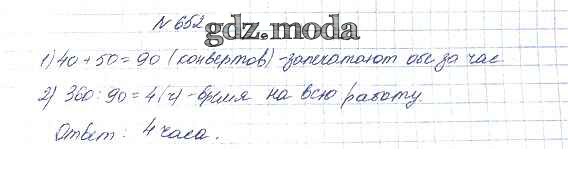 № 652
gdz.moda
1) 40 + 50 = 90 (конвертов) - запечатают обе за час.
2) 360 : 90 = 4 (ч) - время на всю работу.
Ответ: 4 часа.